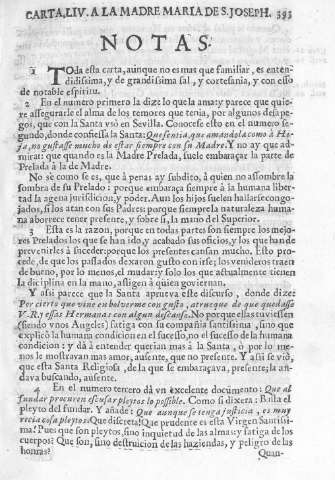 CARTA, LIV. A LA MADRE MARIA DE S. JOSEPH. 393
NOTAS.
1 Toda esta carta, aunque no es mas que familiar, es enten-
didissima, y de grandissima sal, y cortesania, y con esso
de notable espiritu.
2 En el numero primero la dize lo que la ama: y parece que quie-
re assegurarle el alma de los temores que tenia, por algunos desape-
gos, que con la Santa vsò en Sevilla. Conocese esto en el numero se-
gundo, donde confiessa la Santa: Que sentia, que amandola como à Hi-
ja, no gustasse mucho de estar siempre con su Madre. Y no ay que ad-
mirar: que quando es la Madre Prelada, suele embaraçar la parte de
Prelada à la de Madre.
No sè como se es, que à penas ay subdito, à quien no assombre la
sombra de su Prelado: porque embaraça siempre à la humana liber-
tad la agena jurisdiccion, y poder. Aun los hijos suelen hallarse congo-
jados, si los atan con sus Padres: porque siempre la naturaleza huma-
na aborrece tener presente, y sobre sì, la mano del Superior.
3 Esta es la razon, porque en todas partes son siempre los mejo-
res Prelados los que se han ido, y acabado sus oficios, y los que han de
prevenirles à suceder: porque los presentes cansan mucho. Esto pro-
cede, de que los passados dexaron gusto con irse; los venideros traen
de bueno, por lo menos, el mudar: y solo los que actualmente tienen
la diciplina en la mano, afligen à quien goviernan.
Y assi parece que la Santa aprueva este discurso, donde dize:
Por cierto que vine en bolverme con gusto, à trueque de que quedasse
V. R. y essas Hermanas con algun descanso. No porque ellas tuviessen
(siendo vnos Angeles) fatiga con su compañia santissima, sino que
explicò la humana condicion en el sucesso, no el sucesso de la humana
condicion: y dà à entender querian mas à la Santa, ò por lo me-
nos le mostravan mas amor, ausente, que no presente. Y assi se viò,
que esta Santa Religiosa, de la que se embaraçava, presente; la an-
dava buscando, ausente.
4 En el numero tercero dà vn excelente documento: Que al
fundar, procuren escusar pleytos lo possible. Como si dixera: Basta el
pleyto del fundar. Y añade: Que aunque se tenga justicia, es muy
recia cosa pleytos. Que discreta! Que prudente es esta Virgen Santissi-
ma! Pues que son pleytos, sino inquietud de las almas, y fatiga de los
cuerpos? Que son, sino destruicion de las haziendas, y peligro de las
honras?
Quan-